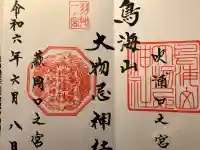 鳥海山
大物忌神社
吹浦口之宮
蕨岡口之宮
令和六年六月八